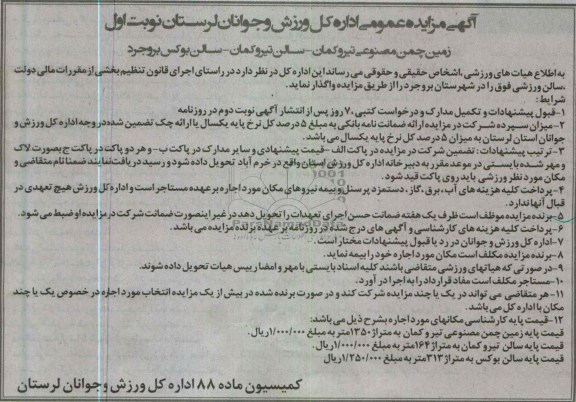 آگهی مزایده عمومی اداره کل ورزش و جوانان لرستان نوبت اول
زمین چمن مصنوعی تیر و کمان - سالن تیر و کمان - سالن بوکس بروجرد
به اطلاع هیات های ورزشی، اشخاص حقیقی و حقوقی می رساند این اداره کل در نظر دارد در راستای اجرای قانون تنظیم بخشی از مقررات مالی دولت
، سالن ورزشی فوق را در شهرستان بروجرد را از طریق مزایده واگذار نماید.
شرایط:
۱- قبول پیشنهادات و تکمیل مدارک و درخواست کتبی، ۷ روز پس از انتشار آگهی نوبت دوم در روزنامه
۲- میزان سپرده شرکت در مزایده ارائه ضمانت نامه بانکی به مبلغ ۵ درصد کل نرخ پایه یکسال یا ارائه چک تضمین شده در وجه اداره کل ورزش و
جوانان استان لرستان به میزان ۵ درصد کل نرخ پایه یکسال می باشد.
۳- ترتیب پیشنهادات: تضمین شرکت در مزایده در پاکت الف - قیمت پیشنهادی و سایر مدارک در پاکت ب - و هر دو پاکت در پاکت ج بصورت لاک
و مهر شده بایستی در موعد مقرر به دبیرخانه اداره کل ورزش استان واقع در خرم آباد تحویل داده شود و رسید دریافت نمایند ضمنا نام متقاضی و
مکان مورد نظر ورزشی باید روی پاکت قید شود.
۴- پرداخت کلیه هزینه های آب، برق، گاز، دستمزد پرسنل و بیمه نیروهای مکان مورد اجاره بر عهده مستاجر است و اداره کل ورزش هیچ تعهدی در
قبال آنها ندارد.
۵- برنده مزایده موظف است ظرف یک هفته ضمانت حسن اجرای تعهدات را تحویل دهد در غیر اینصورت ضمانت شرکت در مزایده او ضبط می شود.
۶- پرداخت کلیه هزینه های کارشناسی و آگهی های درج شده در روزنامه بر عهده برنده مزایده می باشد.
۷- اداره کل ورزش و جوانان در رد یا قبول پیشنهادات مختار است.
۸- برنده مزایده مکلف است مکان مورد اجاره خود را بیمه نماید.
۹- در صورتی که هیاتهای ورزشی متقاضی باشند کلیه اسناد بایستی با مهر و امضا رییس هیات تحویل داده شوند.
۱۰- مستاجر مکلف است مفاد قرارداد را به اجرا در آورد.
۱۱- هر متقاضی می تواند در یک یا چند مزایده شرکت کند و در صورت برنده شده در بیش از یک مزایده انتخاب مورد اجاره در خصوص یک یا چند
مکان با اداره کل می باشد.
۱۲- قیمت پایه کارشناسی مکانهای مورد اجاره بشرح ذیل می باشد:
قیمت پایه زمین چمن مصنوعی تیر و کمان به متراژ ۱۳۵۰ متر به مبلغ ۱/۰۰۰/۰۰۰ ریال.
قیمت پایه سالن تیر و کمان به متراژ ۱۶۴ متر به مبلغ ۱/۰۰۰/۰۰۰ ریال.
قیمت پایه سالن بوکس به متراژ ۳۱۳ متر به مبلغ ۱/۲۵۰/۰۰۰ ریال
کمیسیون ماده ۸۸ اداره کل ورزش و جوانان لرستان